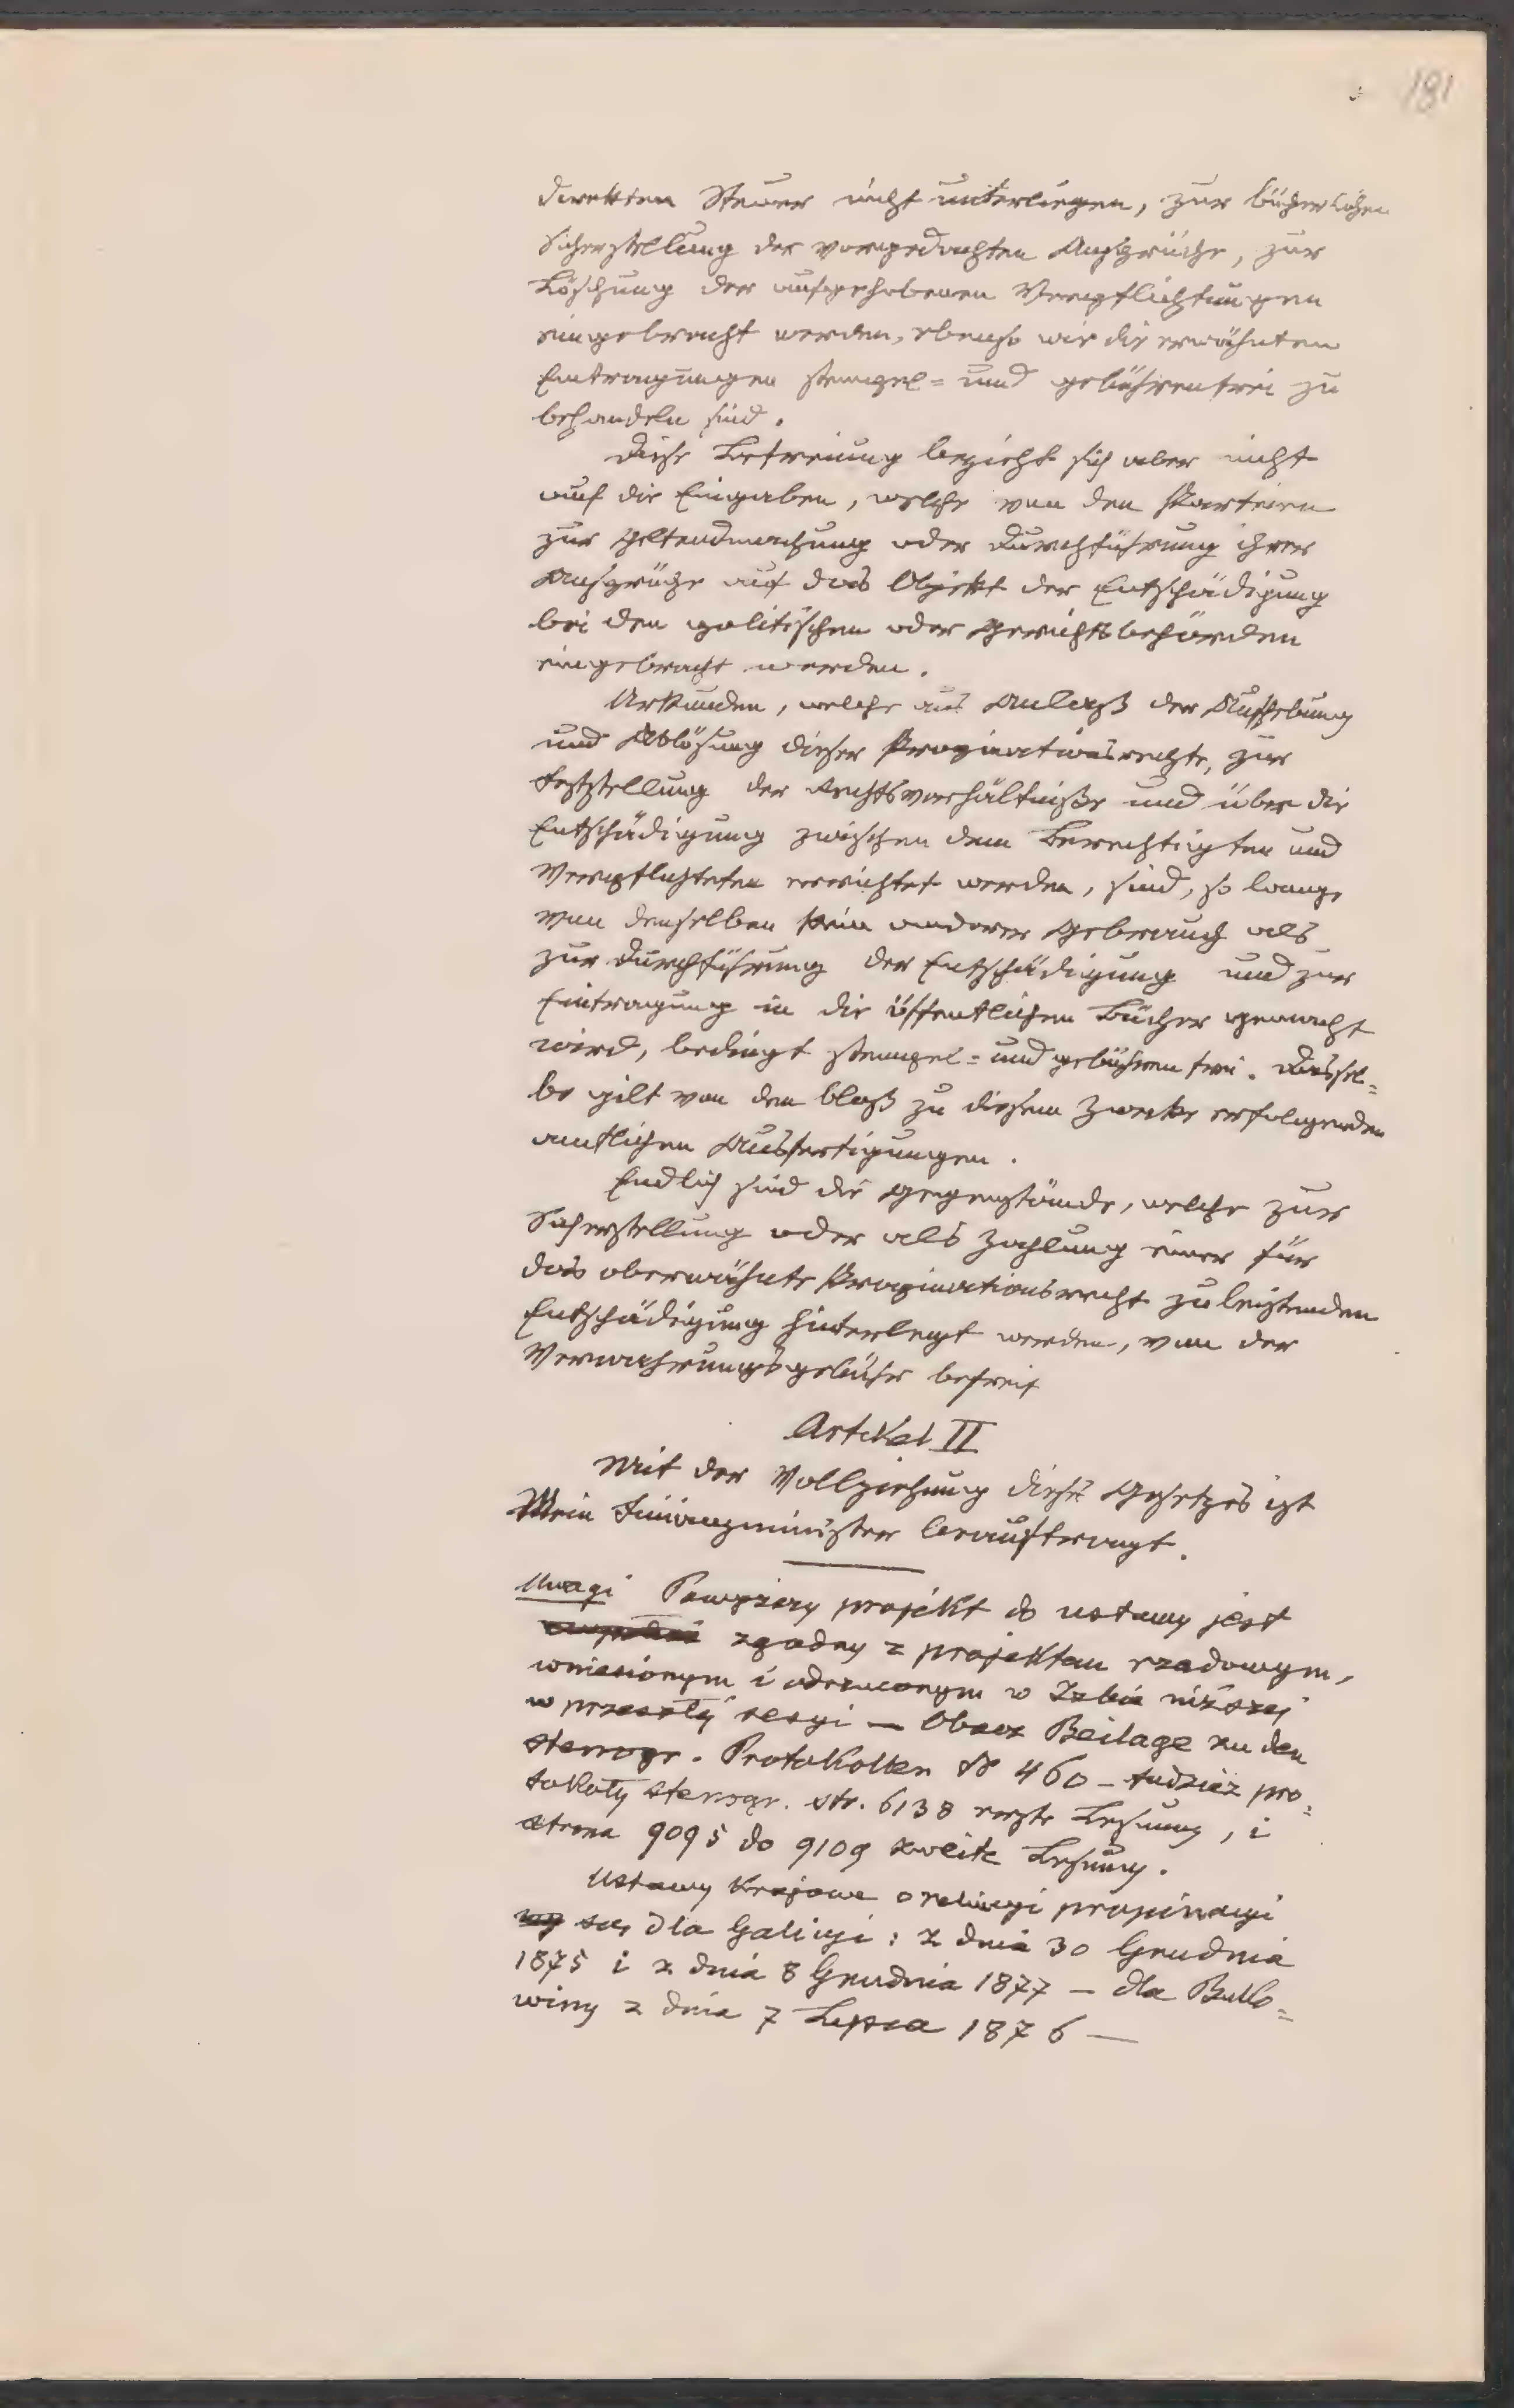 181
direkten Steuer nicht unterliegen, zur bücherlichen
Sicherstellung der vorgedachten Ansprüche, zur
Löschung der aufgehobenen Verpflichtungen
eingebracht werden, ebenso wie die erwähnten
Eintragungen stempel= und gebührenfrei zu
behandeln sind.
Diese Befreiung bezieht sich aber nicht
auf die Eingaben, welche von den Parteien
zur Geltendmachung oder Durchführung ihrer
Ansprüche auf das Objekt der Entschädigung
bei den politischen oder Gerichtsbehörden
eingebracht werden.
Urkunden, welche aus Anlaß der Aufhebung
und Ablösung dieser Propinationsrechte, zur
Feststellung der Rechtsverhältniße und über die
Entschädigung zwischen dem Berechtigten und
Verpflichteten errichtet werden, sind, so lange
von denselben kein anderer Gebrauch als
zur Durchführung der Entschädigung und zur
Eintragung in die öffentlichen Bücher gemacht
wird, bedingt stempel= und gebührenfrei. Dassel=
be gilt von den bloß zu diesem Zwecke erfolgenden
amtlichen Ausfertigungen.
Endlich sind die Gegenstände, welche zur
Sicherstellung oder als Zahlung einer für
das oberwähnte Propinationsrecht zu leistenden
Entschädigung hinterlegt werden, von der
Verwahrungsgebühr befreit
Artikel II
Mit der Vollziehung dieses Gesetzes ist
Mein Finanzminister beauftragt.
Uwagi Powyższy projekt do ustawy jest
zgodny z projektem rządowym,
wniesionym i odrzuconym w Izbie niższej
w przeszłéj sesyi — Obacz Beilage zu den
stenogr. Protokollen № 460 – tudzież pro=
tokoły stenogr. str. 6138 erste Lesung, i
strona 9095 do 9109 zweite Lesung.
Ustawy krajowe o relucyi propinacyi
są, dla Galicyi: z dnia 30 Grudnia
1875 i z dnia 8 Grudnia 1877 — dla Buko=
winy z dnia 7 Lipca 1876 —